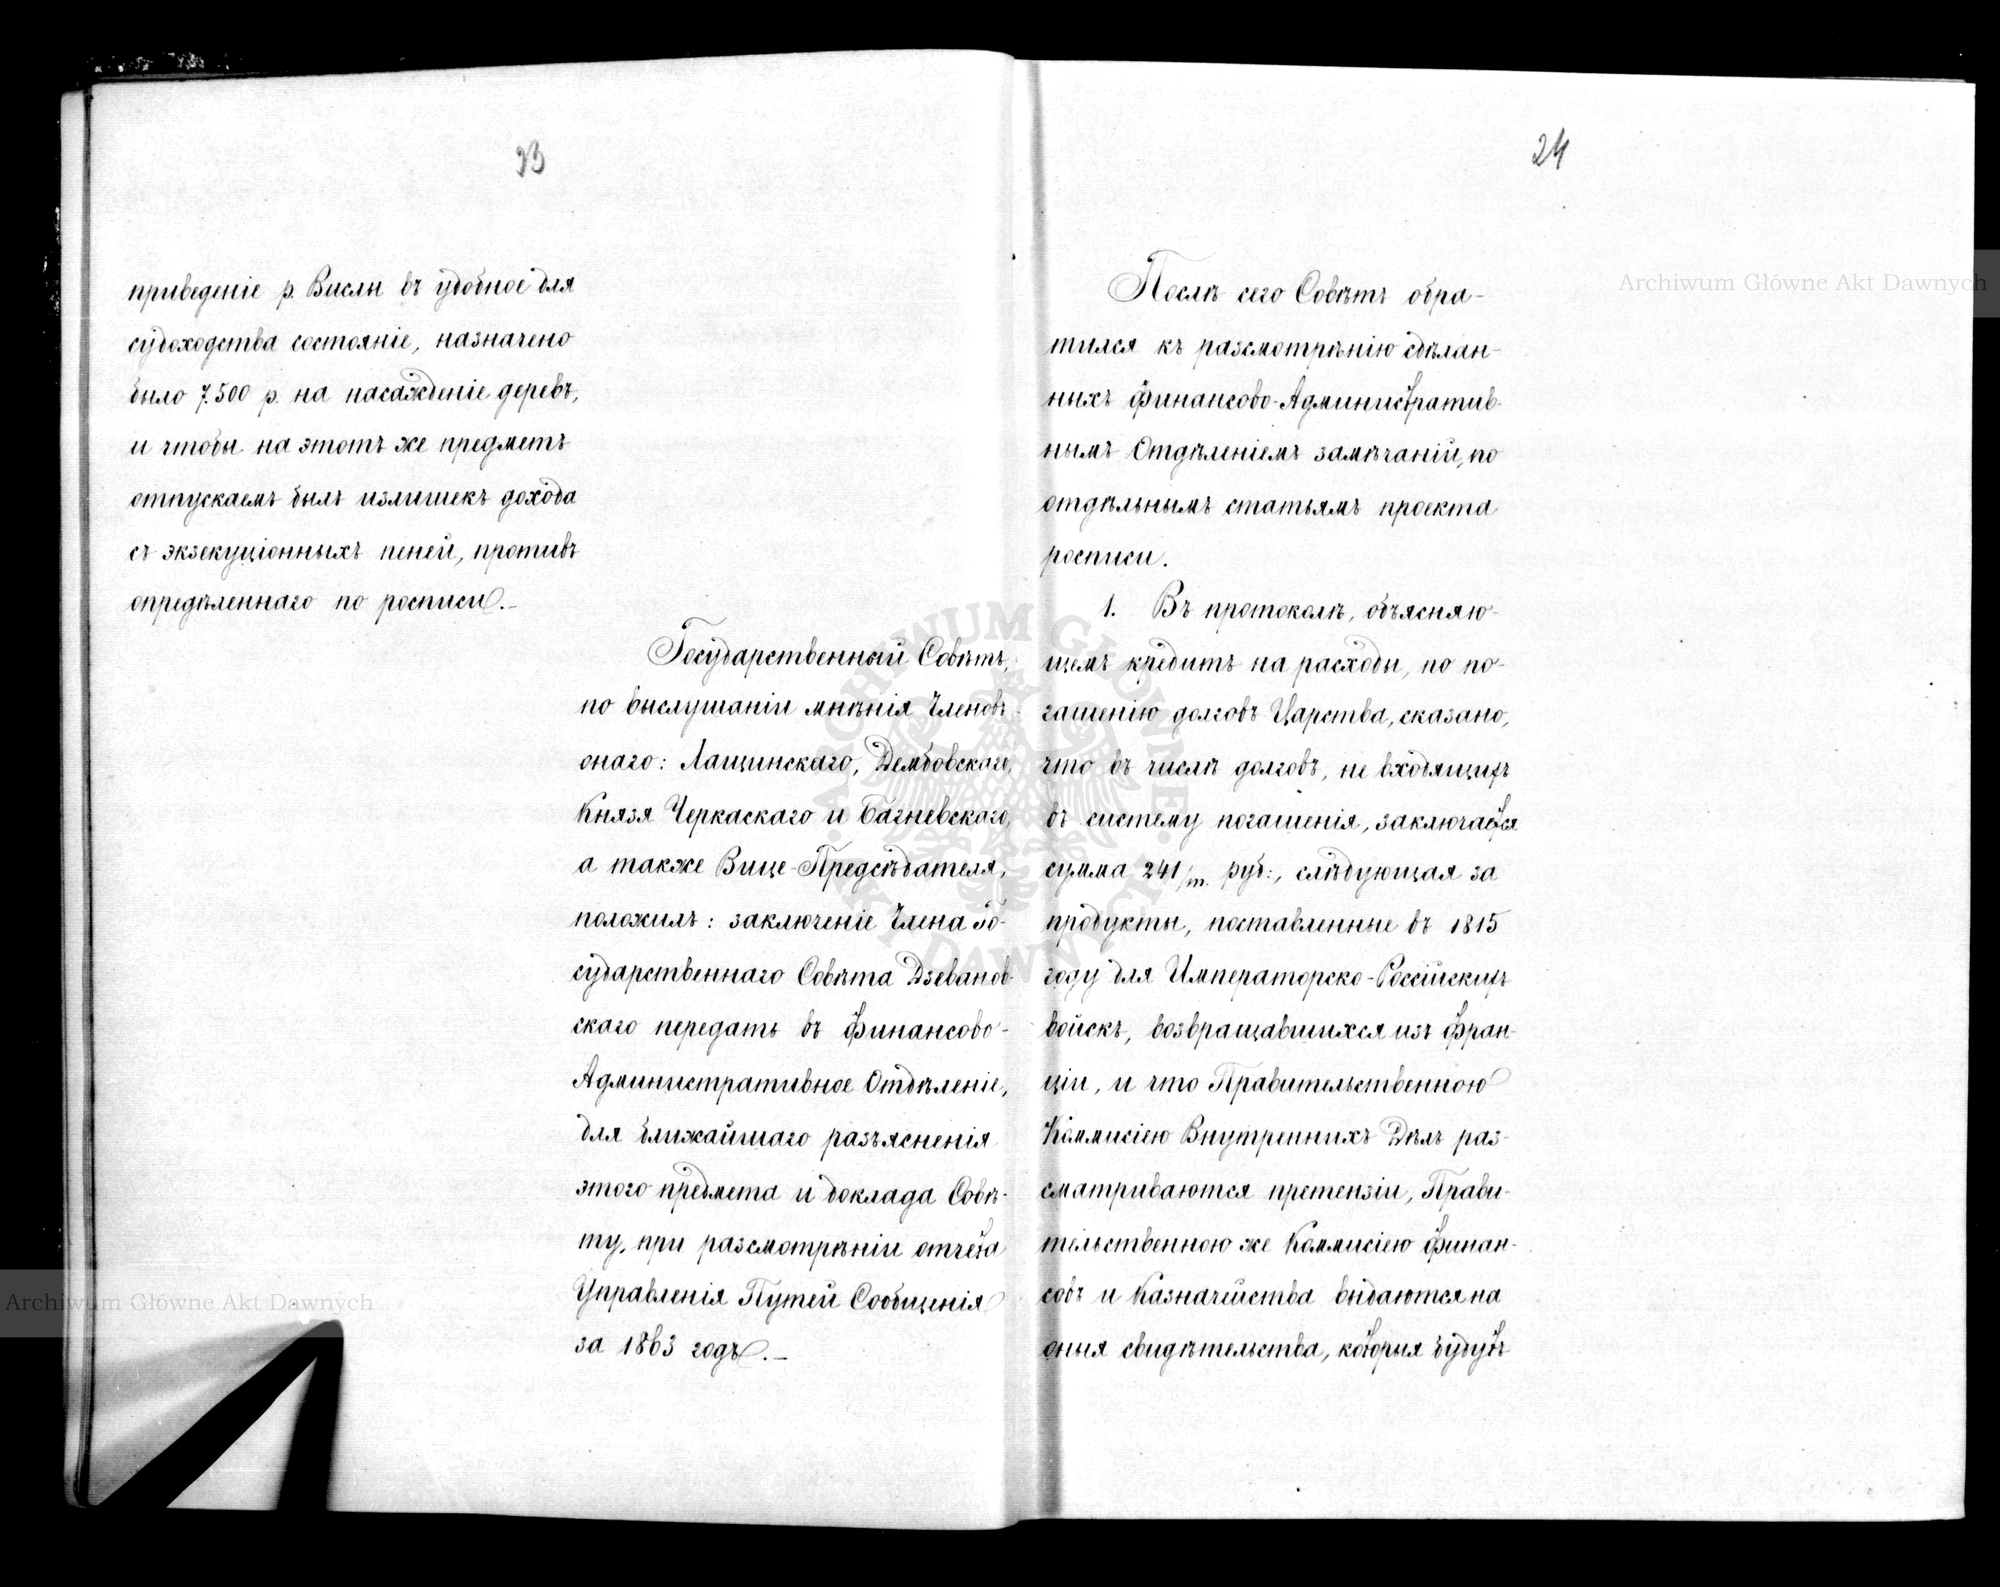 23
приведеніе р. Вислы въ удобное для
судоходства состояніе, назначено
было 7.500 р. на насажденіе деревъ,
и чтобы на этотъ же предметъ
отпускаемъ былъ излишекъ дохода
съ экзекуціонныхъ пеней, противъ
опредѣленнаго по росписи.—
Государственный Совѣтъ,
по выслушаніи мнѣнія Членовъ
онаго: Лащинскаго, Дембовскаго,
Князя Черкаскаго и Багневскаго,
а также Вице-Предсѣдателя,
положилъ: заключеніе Члена Го-
сударственнаго Совѣта Дзеванов-
скаго передать въ Финансово-
Административное Отдѣленіе,
для ближайшаго разъясненія
этого предмета и доклада Совѣ-
ту, при разсмотрѣніи отчета
Управленія Путей Сообщенія
за 1863 годъ.—
24
Послѣ сего Совѣтъ обра-
тился къ разсмотрѣнію сдѣлан-
ныхъ Финансово-Административ-
нымъ Отдѣленіемъ замѣчаній, по
отдѣльнымъ статьямъ проекта
росписи.
1. Въ протоколѣ, объясняю-
щемъ кредитъ на расходы, по по-
гашенію долговъ Царства, сказано,
что въ числѣ долговъ, не входящихъ
въ систему погашенія, заключается
сумма 241/m. руб:, слѣдующая за
продукты, поставленные въ 1815
году для Императорско-Россійскихъ
войскъ, возвращавшихся изъ Фран-
ціи, и что Правительственною
Коммисіею Внутреннихъ Дѣлъ раз-
сматриваются претензіи, Прави-
тельственною же Коммисіею Финан-
совъ и Казначейства выдаются на
оныя свидѣтельства, которыя будутъ
Archiwum Główne Akt Dawnych
Archiwum Główne Akt Dawnych
ARCHIWUM GŁÓWNE AKT DAWNYCH